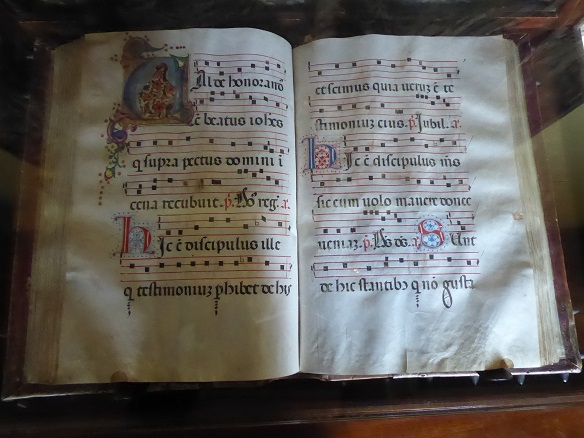 VAlde honorandꝰ
ē beatus iohēs
q supra pectus domini ī
cena recubuit. p̄. Dn̄s reg. a.
Hic ē discipulus ille
q testimoniuz phibet de his
et scimus quia ueruz ē te
stimoniuz eius. p̄. Iubil. a.
Hic ē discipulus m̄s
sic eum uolo manere donec
ueniaz. p̄. Ds ds. a. Sunt
de hic stantibꝰ q nō gusta